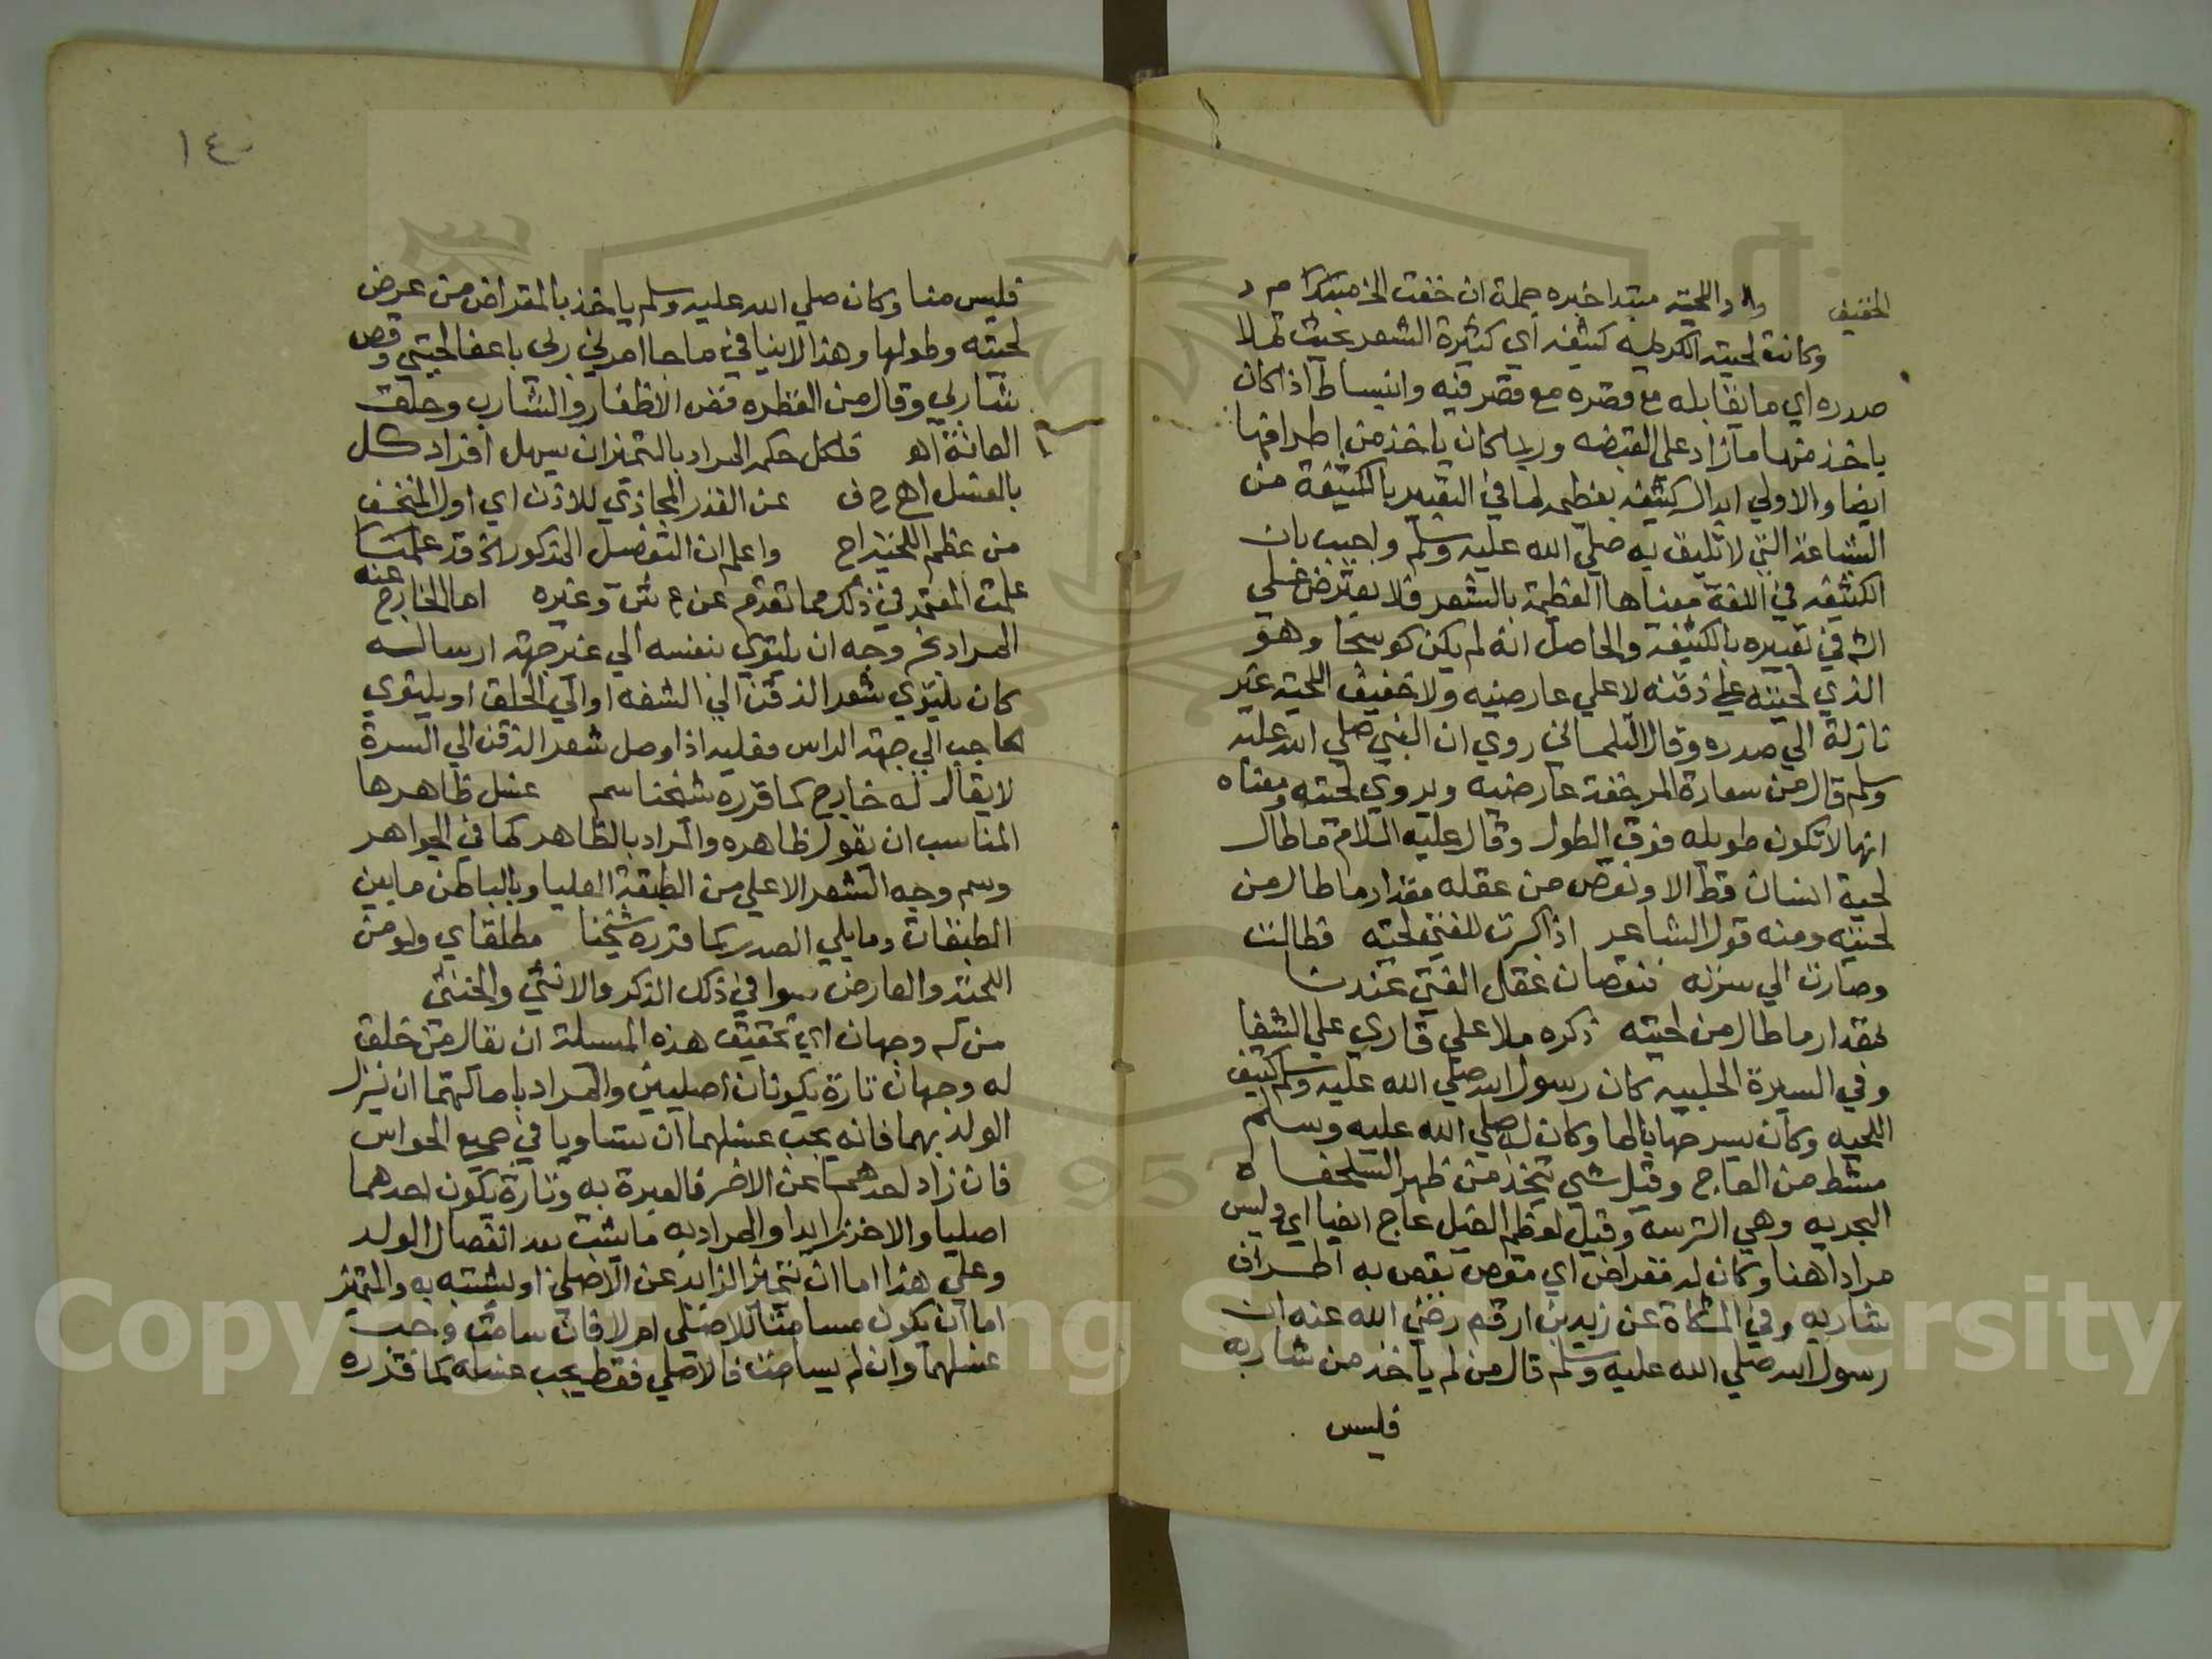 الخفيف والا واللحية مبتدا خبره جملة ان خفت الخ مبتدا م د
وكانت لحيته الكريمه كثيفه اي كثيرة الشعر بحيث تملا
صدره اي ما تقابله مع قصره مع قصر فيه وانبساط اذا كان
ياخذ منها ما زاد علي القبضه وربما كان ياخذ من اطرافها
ايضا والاولي ابدال كثيفه بعظيمه لما في التعبير بالكثيفة من
الشاعة التي لا تليق به صلي الله عليه وسلم واجيب بان
الكثيفه في اللغة معناها العظيمة بالشعر فلا يعترض علي
الش في تعبيره بالكثيفه والحاصل انه لم يكن كوسجا وهو
الذي لحيته علي ذقنه لا علي عارضيه ولا خفيف اللحية غير
نازلة الي صدره وقال التلمساني روي ان النبي صلي الله عليه
وسلم قال من سعادة المر خفة عارضيه ويروي لحيته ومعناه
انها لا تكون طويله فوق الطول وقال عليه السلام ما طال
لحية انسان قط الا ونقص من عقله مقدار ما طال من
لحيته ومنه قول الشاعر اذا كبرت للفتي لحيته فطالت
وصارت الي سرته فنقصان عقل الفتي عندنا
بمقدار ما طال من لحيته ذكره ملا علي قاري علي الشفا
وفي السيرة الحلبيه كان رسول الله صلي الله عليه وسلم كثيف
اللحيه وكان يسرحها بالما وكان له صلي الله عليه وسلم
مشط من العاج وقيل شي يتخذ من ظهر السلحفاه
البحريه وهي الترسه وقيل لعظم الفيل عاج ايضا اي وليس
مرادا هنا وكان له مقراض اي مقص يقص به اطراف
شاربه وفي المشكاة عن زيد بن ارقم رضي الله عنه ان
رسول الله صلي الله عليه وسلم قال من لم ياخذ من شاربه
فليس
١٤
فليس منا وكان صلي الله عليه وسلم ياخذ بالمقراض من عرض
لحيته وطولها وهذا لا ينافي ما جا امرني ربي باعفا لحيتي وقص
شاربي وقال من الفطره قص الاظفار والشارب وحلق
العانة اه قلكل حكمه المراد بالتميزان يسهل افراد كل
بالغسل اهع ف عن القدر المحاذي للاذن اي اول المنخسف
من عظم اللحية اح واعلم ان التفصيل المذكور الخ قد علمت
علمت المعتمد في ذلك مما تقدم عن ع ش وغيره اما الخارج عنه
المراد بخروجه ان يلتوي بنفسه الي غير جهة ارساله
كان يلتوي شعر الذقن الي الشفه او الي الحلق او يلتوي
الحاجب الي جهة الراس فعليه اذا وصل شعر الذقن الي السرة
لا يقال له خارج كما قرره شيخنا سم غسل ظاهرها
المناسب ان يقول ظاهره والمراد بالظاهر كما في الجواهر
وسم وجه الشعر الاعلي من الطبقة العليا وبالباطن ما بين
الطبقات وما يلي الصدر كما قرره شيخنا مطلقا اي ولو من
اللحية والعارض سوا في ذلك الذكر والانثي والخنثي
من له وجهان اي تحقيق هذه المسلة ان يقال من خلق
له وجهان تارة يكونان اصليين والمراد باصالتهما ان نزل
الولد بهما فانه يجب غسلهما ان تساويا في جميع الحواس
فان زاد احدهما عن الاخر فالعبرة به وتارة يكون احدهما
اصليا والاخر زايدا والمراد به ما يثبت بعد انفصال الولد
وعلي هذا اما ان يتميز الزايد عن الاصلي او يشتبه به والمتميز
اما ان يكون مسامتا للاصلي ام لا فان سامت وجب
غسلهما وان لم يسامت فالاصلي فقط يجب غسله كما قرره
Copyright © King Saud University
1957